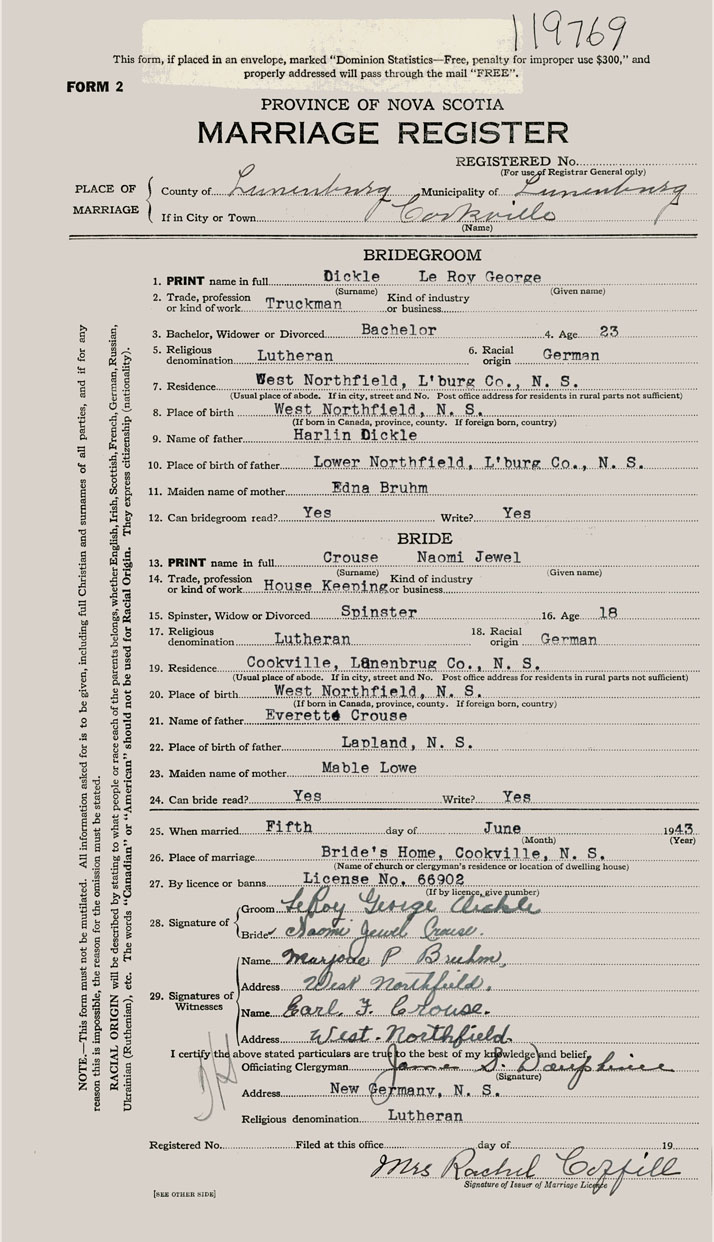 119769
This form, if placed in an envelope, marked "Dominion Statistics—Free, penalty for improper use $300," and
properly addressed will pass through the mail "FREE".
FORM 2
PROVINCE OF NOVA SCOTIA
MARRIAGE REGISTER
REGISTERED No.
(For use of Registrar General only)
PLACE OF MARRIAGE
County of Lunenburg Municipality of Lunenburg
If in City or Town Cookville
(Name)
BRIDEGROOM
1. PRINT name in full Dickle Le Roy George
(Surname) (Given name)
2. Trade, profession or kind of work Truckman Kind of industry or business
3. Bachelor, Widower or Divorced Bachelor 4. Age 23
5. Religious denomination Lutheran 6. Racial origin German
7. Residence West Northfield, L'burg Co., N. S.
(Usual place of abode. If in city, street and No. Post office address for residents in rural parts not sufficient)
8. Place of birth West Northfield, N. S.
(If born in Canada, province, county. If foreign born, country)
9. Name of father Harlin Dickle
10. Place of birth of father Lower Northfield, L'burg Co., N. S.
11. Maiden name of mother Edna Bruhm
12. Can bridegroom read? Yes Write? Yes
BRIDE
13. PRINT name in full Crouse Naomi Jewel
(Surname) (Given name)
14. Trade, profession or kind of work House Keeping Kind of industry or business
15. Spinster, Widow or Divorced Spinster 16. Age 18
17. Religious denomination Lutheran 18. Racial origin German
19. Residence Cookville, Lanenbrug Co., N. S.
(Usual place of abode. If in city, street and No. Post office address for residents in rural parts not sufficient)
20. Place of birth West Northfield, N. S.
(If born in Canada, province, county. If foreign born, country)
21. Name of father Everette Crouse
22. Place of birth of father Lapland, N. S.
23. Maiden name of mother Mable Lowe
24. Can bride read? Yes Write? Yes
25. When married Fifth day of June 1943
(Month) (Year)
26. Place of marriage Bride's Home, Cookville, N. S.
(Name of church or clergyman's residence or location of dwelling house)
27. By licence or banns License No. 66902
(If by licence, give number)
28. Signature of
Groom LeRoy George Dickle
Bride Naomi Jewel Crouse.
29. Signatures of Witnesses
Name Marjorie P Bruhm,
Address West Northfield.
Name Earl F. Crouse.
Address West. Northfield.
I certify the above stated particulars are true to the best of my knowledge and belief.
Officiating Clergyman James S. Dauphinee
(Signature)
Address New Germany, N. S.
Religious denomination Lutheran
Registered No. Filed at this office day of 19
Mrs Rachel Corfill
Signature of Issuer of Marriage Licence
[SEE OTHER SIDE]
NOTE.—This form must not be mutilated. All information asked for is to be given, including full Christian and surnames of all parties, and if for any
reason this is impossible, the reason for the omission must be stated.
RACIAL ORIGIN will be described by stating to what people or race each of the parents belongs, whether English, Irish, Scottish, French, German, Russian,
Ukrainian (Ruthenian), etc. The words "Canadian" or "American" should not be used for Racial Origin. They express citizenship (nationality).